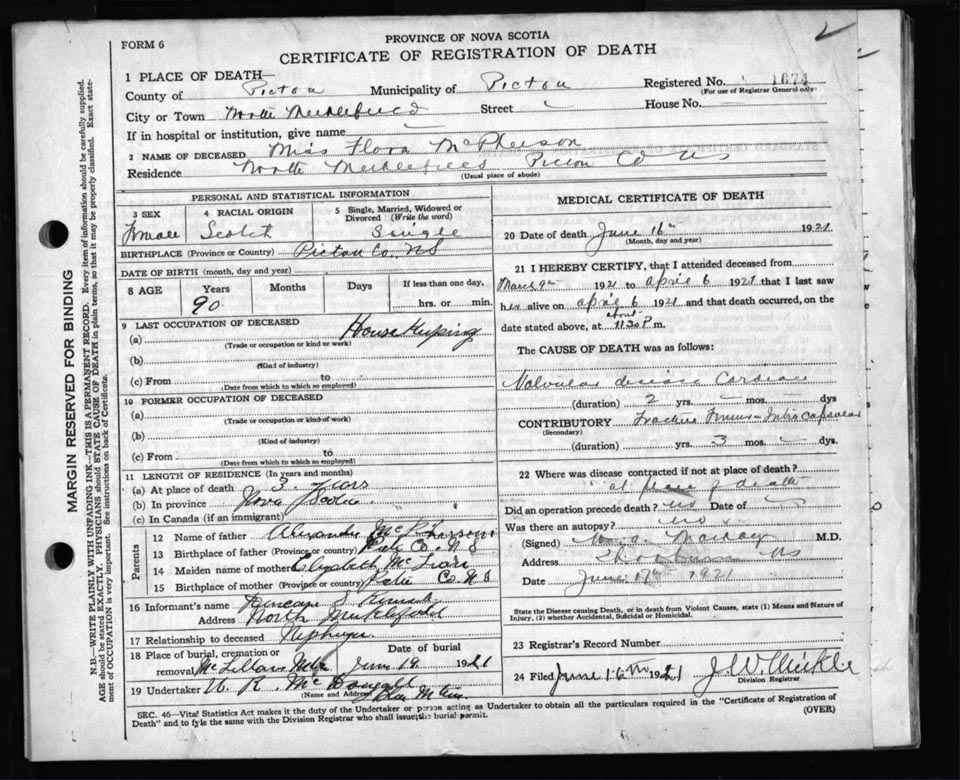 2
FORM 6
PROVINCE OF NOVA SCOTIA
CERTIFICATE OF REGISTRATION OF DEATH
1 PLACE OF DEATH—
County of Pictou Municipality of Pictou Registered No. 1674
(For use of Registrar General only)
City or Town North Street House No.
If in hospital or institution, give name
2 NAME OF DECEASED Miss Flora McPherson
Residence North Pictou Co NS
(Usual place of abode)
PERSONAL AND STATISTICAL INFORMATION
3 SEX Female
4 RACIAL ORIGIN Scotch
5 Single, Married, Widowed or Divorced (Write the word) Single
BIRTHPLACE (Province or Country) Pictou Co. NS
DATE OF BIRTH (month, day and year)
8 AGE Years Months Days If less than one day,
90 hrs. or min.
9 LAST OCCUPATION OF DECEASED
(a) House Keeping
(Trade or occupation or kind or work)
(b)
(Kind of industry)
(c) From to
(Date from which to which so employed)
10 FORMER OCCUPATION OF DECEASED
(a)
(Trade or occupation or kind of work)
(b)
(Kind of industry)
(c) From to
(Date from which to which so employed)
11 LENGTH OF RESIDENCE (In years and months)
(a) At place of death 3 years
(b) In province Nova Scotia
(c) In Canada (if an immigrant)
Parents
12 Name of father Alexander McPherson
13 Birthplace of father (Province or country) Co. N S
14 Maiden name of mother Elizabeth
15 Birthplace of mother (Province or country) Co. N S
16 Informant's name Duncan S
Address North
17 Relationship to deceased Nephew
18 Place of burial, cremation or removal Date of burial
June 19 1921
19 Undertaker W. R. McDougall
(Name and Address)
MEDICAL CERTIFICATE OF DEATH
20 Date of death June 16th 1921
(Month, day and year)
21 I HEREBY CERTIFY, that I attended deceased from
March 9th 1921 to April 6 1921 that I last saw
her alive on April 6 1921 and that death occurred, on the
date stated above, at about 11.30 P m.
The CAUSE OF DEATH was as follows:
Valvular disease Cardiac
(duration) 2 yrs. mos. dys
CONTRIBUTORY Fracture Femur - Intra capsular
(Secondary)
(duration) yrs. 3 mos. dys.
22 Where was disease contracted if not at place of death?
at place of death
Did an operation precede death? no Date of
Was there an autopsy? no
(Signed) MacKay M.D.
Address NS
Date June 17th 1921
State the Disease causing Death, or in death from Violent Causes, state (1) Means and Nature of Injury, (2) whether Accidental, Suicidal or Homicidal.
23 Registrar's Record Number
24 Filed June 1921
Division Registrar
SEC. 45—Vital Statistics Act makes it the duty of the Undertaker or person acting as Undertaker to obtain all the particulars required in the "Certificate of Registration of
Death" and to file the same with the Division Registrar who shall issue the burial permit.
(OVER)
MARGIN RESERVED FOR BINDING
N.B.—WRITE PLAINLY WITH UNFADING INK—THIS IS A PERMANENT RECORD. Every item of information should be carefully supplied.
AGE should be stated EXACTLY. PHYSICIANS should STATE CAUSE OF DEATH in plain terms, so that it may be properly classified. Exact statement of OCCUPATION is very important. See instructions on back of Certificate.